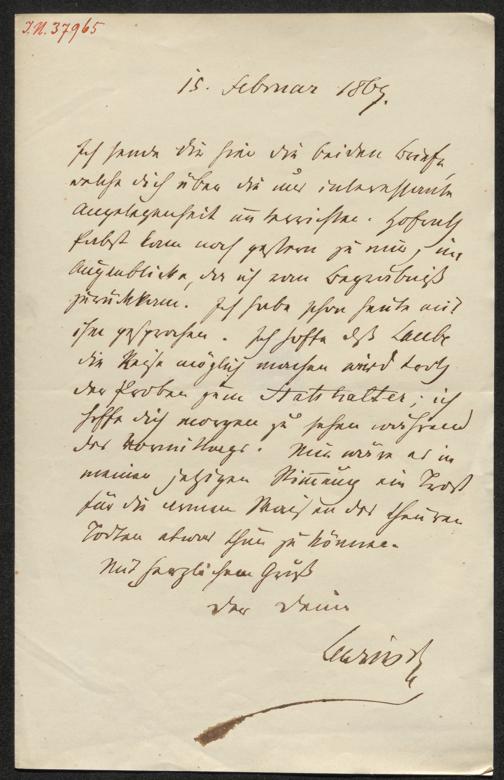 I.N. 37965
15. Februar 1869.
Ich sende Dir hier die beiden Briefe,
welche Dich über die mir interessante
Angelegenheit unterrichten. Hofrath
Pabst kam noch gestern zu mir, im
Augenblicke, da ich vom Begräbniß
zurückkam. Ich habe schon heute mit
ihm gesprochen. Ich hoffe daß Laube
die Reise möglich machen wird trotz
der Proben zum Statthalter; ich
hoffe Dich morgen zu sehen während
des Vormittags. Mir wäre es in
meiner jetzigen Stimmung ein Trost
für die armen Waisen des theuren
Todten etwas thun zu können.
Mit herzlichem Gruß
Der Deine
Lewinsky